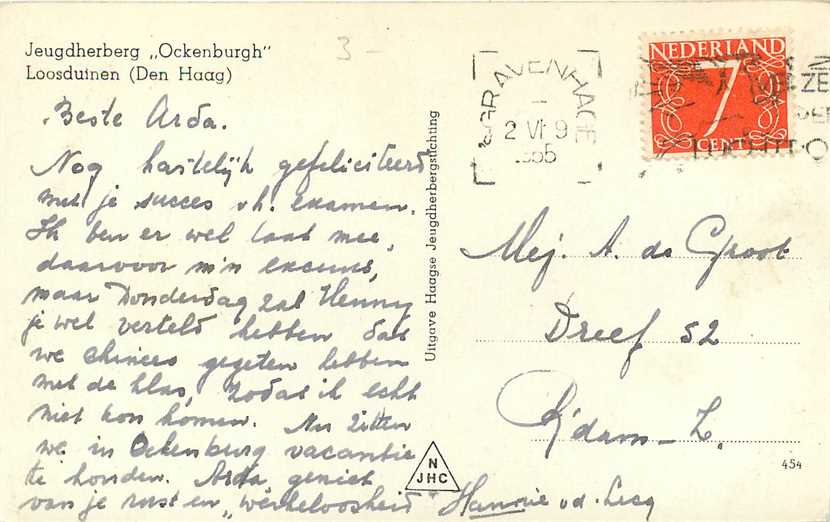 Jeugdherberg „Ockenburgh"
Loosduinen (Den Haag)
Beste Arda.
Nog hartelijk gefeliciteerd
met je succes v.h. examen.
Ik ben er wel laat mee,
daarvoor m'n excuus,
maar Donderdag zal Henny
je wel verteld hebben dat
we chinees gegeten hebben
met de klas, zodat ik echt
niet kon komen. Nu zitten
we in Ockenburg vacantie
te houden. Arda geniet
van je rust en „werkeloosheid
Hannie v.d. Lecq
Uitgave Haagse Jeugdherbergstichting
N
JHC
'SGRAVENHAGE
2 VI 9
1955
NEDERLAND
7
CENT
LUCHTPO
Mej. A. de Groot
Dreef 52
R'dam-Z.
454
3-